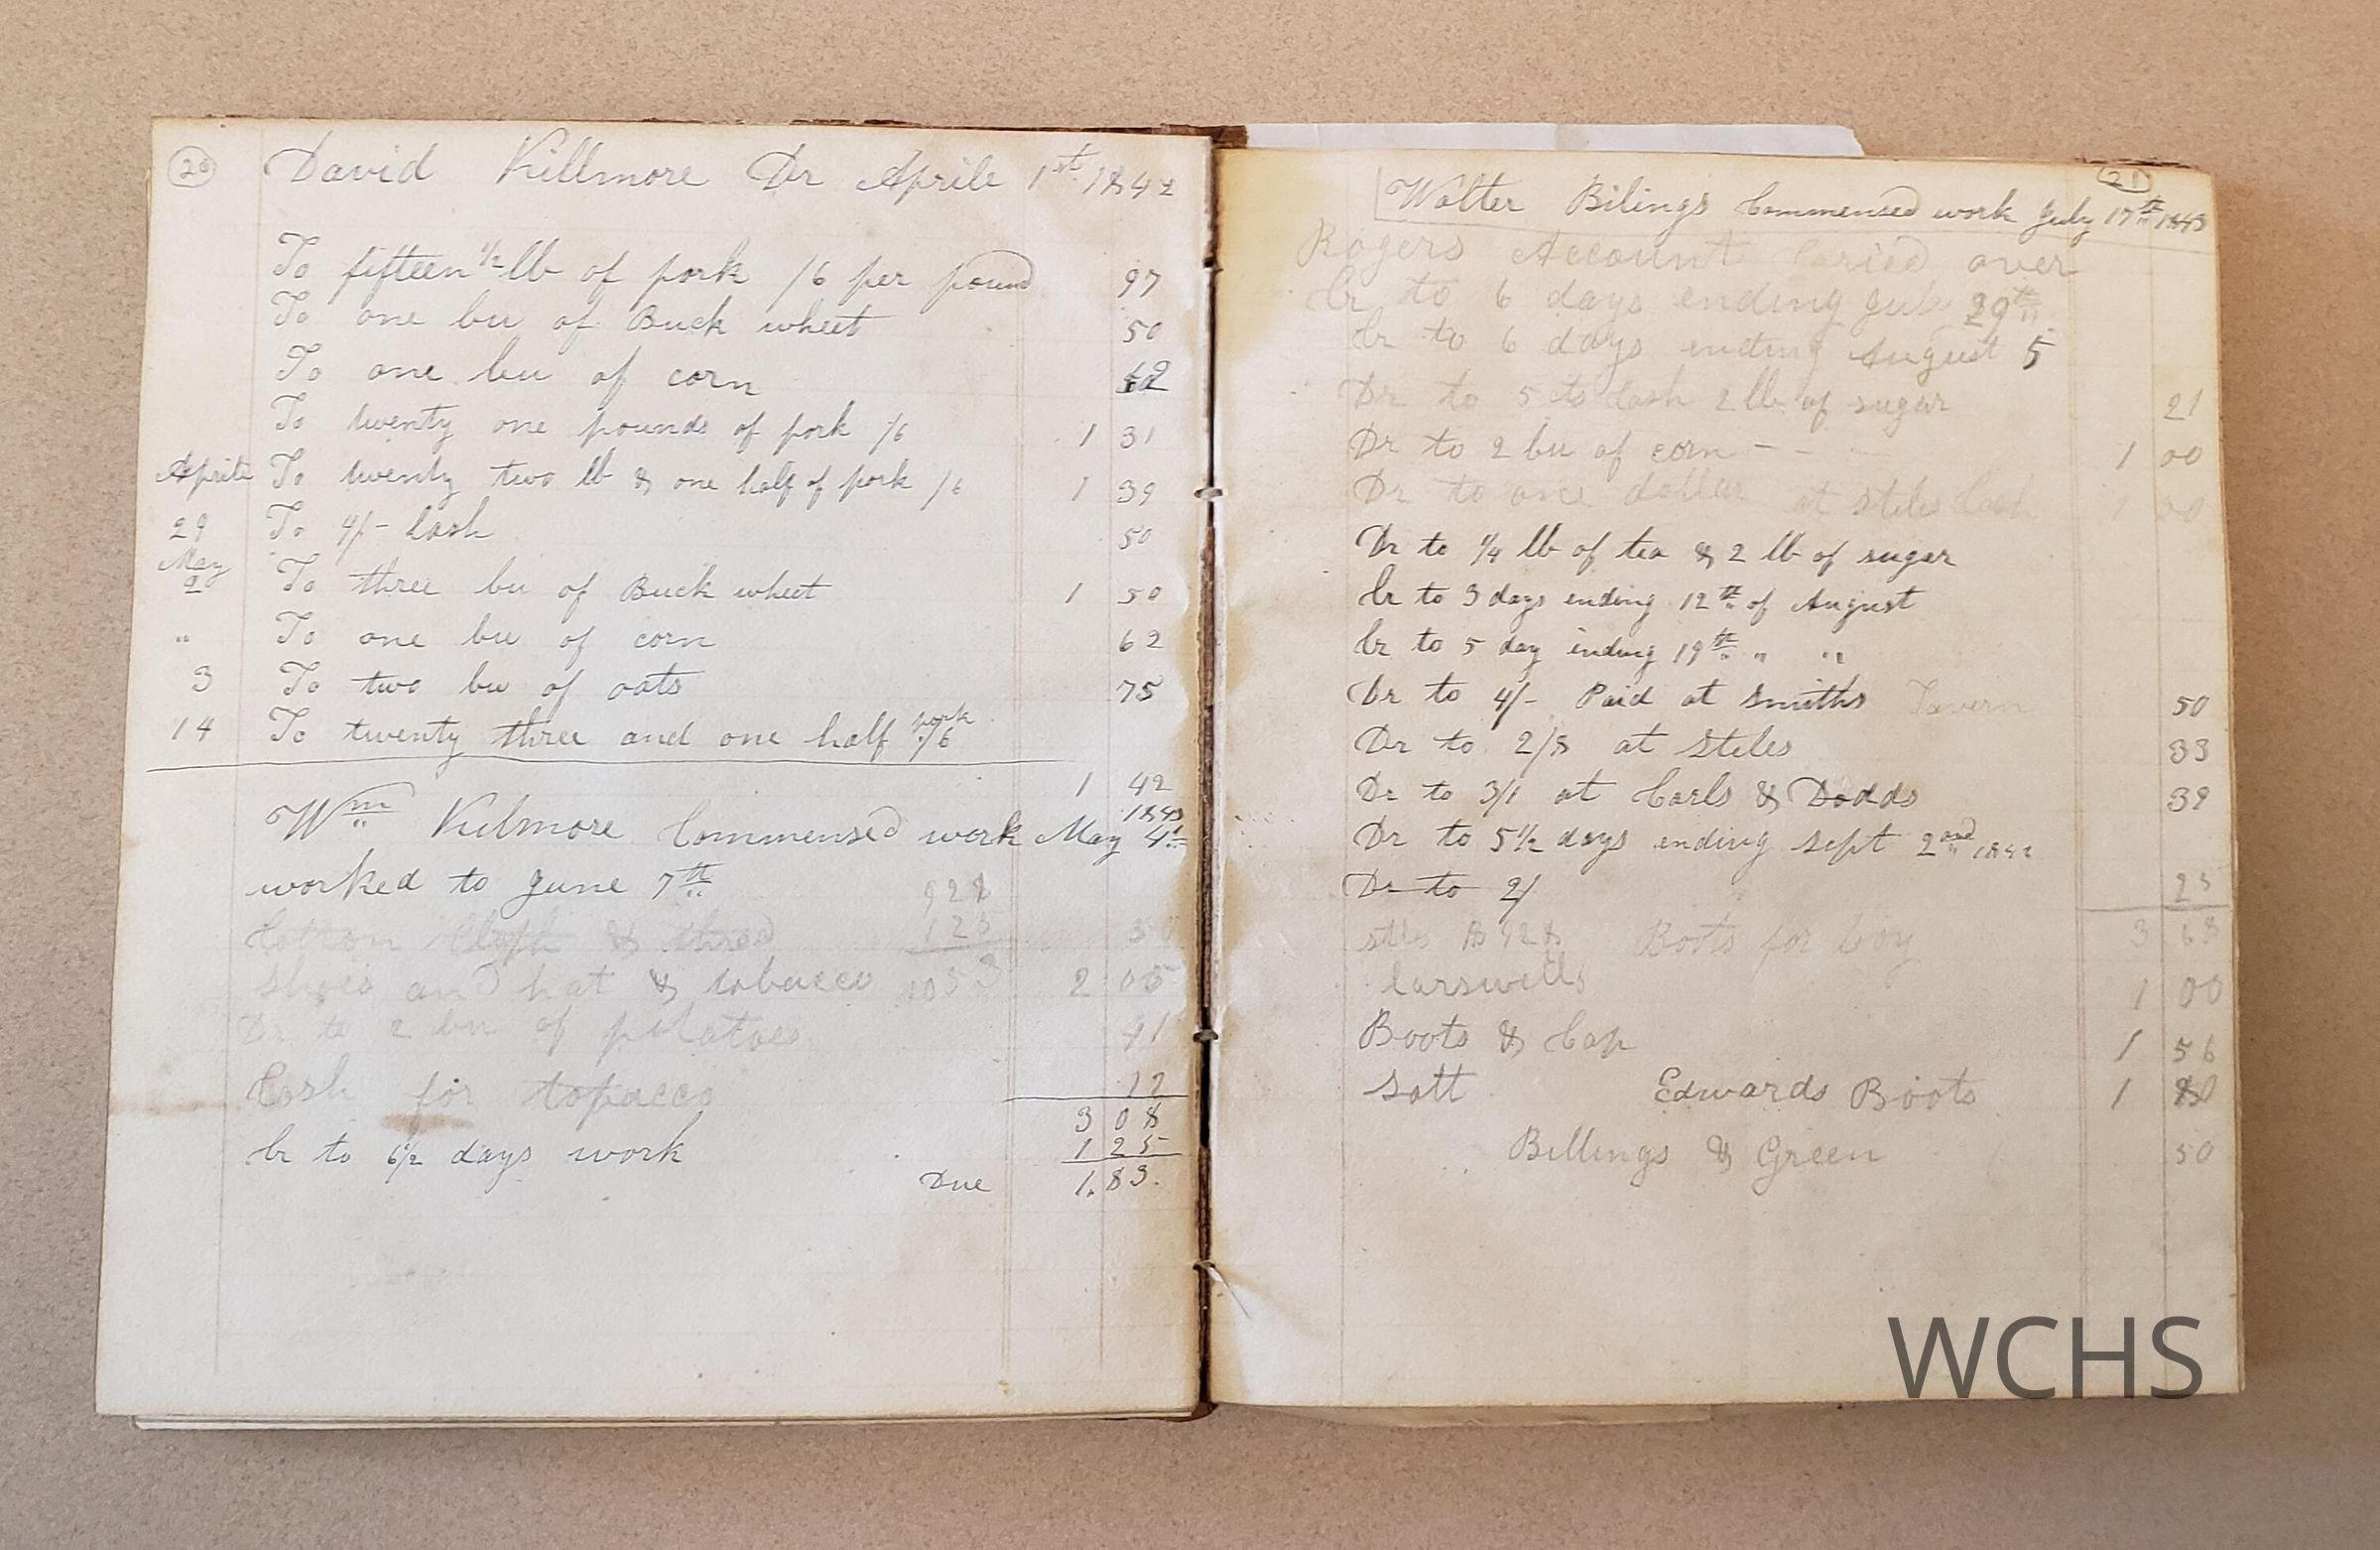 20
David Killmore Dr Aprile 1st 1842
To fifteen 1/2 lb of pork /6 per pound 97
To one bu of Buck wheet 50
To one bu of corn
To twenty one pounds of pork /6 1 31
Aprile To twenty two lb & one half of pork /6 1 39
29 To 4/- Cash 50
May 2 To three bu of Buck wheet 1 50
" To one bu of corn 62
3 To two bu of oats 75
14 To twenty three and one half pork /6
1 42
Wm Kilmore Commensed work May 4th 1843
worked to June 7th 928
Cotton Cloth & thred 125
Shoes and hat & tobacco 1053 2 05
Dr to 2 bu of potatoes
Cash for topacco 12
3 08
Cr to 6 1/2 days work 1 25
Due 1.83.
21
Walter Bilings Commensed work July 17th 1843
Rogers Account Caried over
Cr to 6 days ending July 29th
Cr to 6 days ending August 5
Dr to 5 cts Cash 2 lb of sugar 21
Dr to 2 bu of corn - - - 1 00
Dr to one dollar at Stiles Cash 1 00
Dr to 1/4 lb of tea & 2 lb of sugar
Cr to 3 days ending 12th of August
Cr to 5 day ending 19th " "
Dr to 4/- Paid at Smiths Tavern 50
Dr to 2/8 at Stiles 33
Dr to 3/1 at Carls & Dodds 39
Dr to 5 1/2 days ending Sept 2ond
Dr to 2/ 25
Boots for boy 3 68
Carswells 1 00
Boots & Cap 1 56
Salt Edwards Boots 1
Billings & Green 50
WCHS